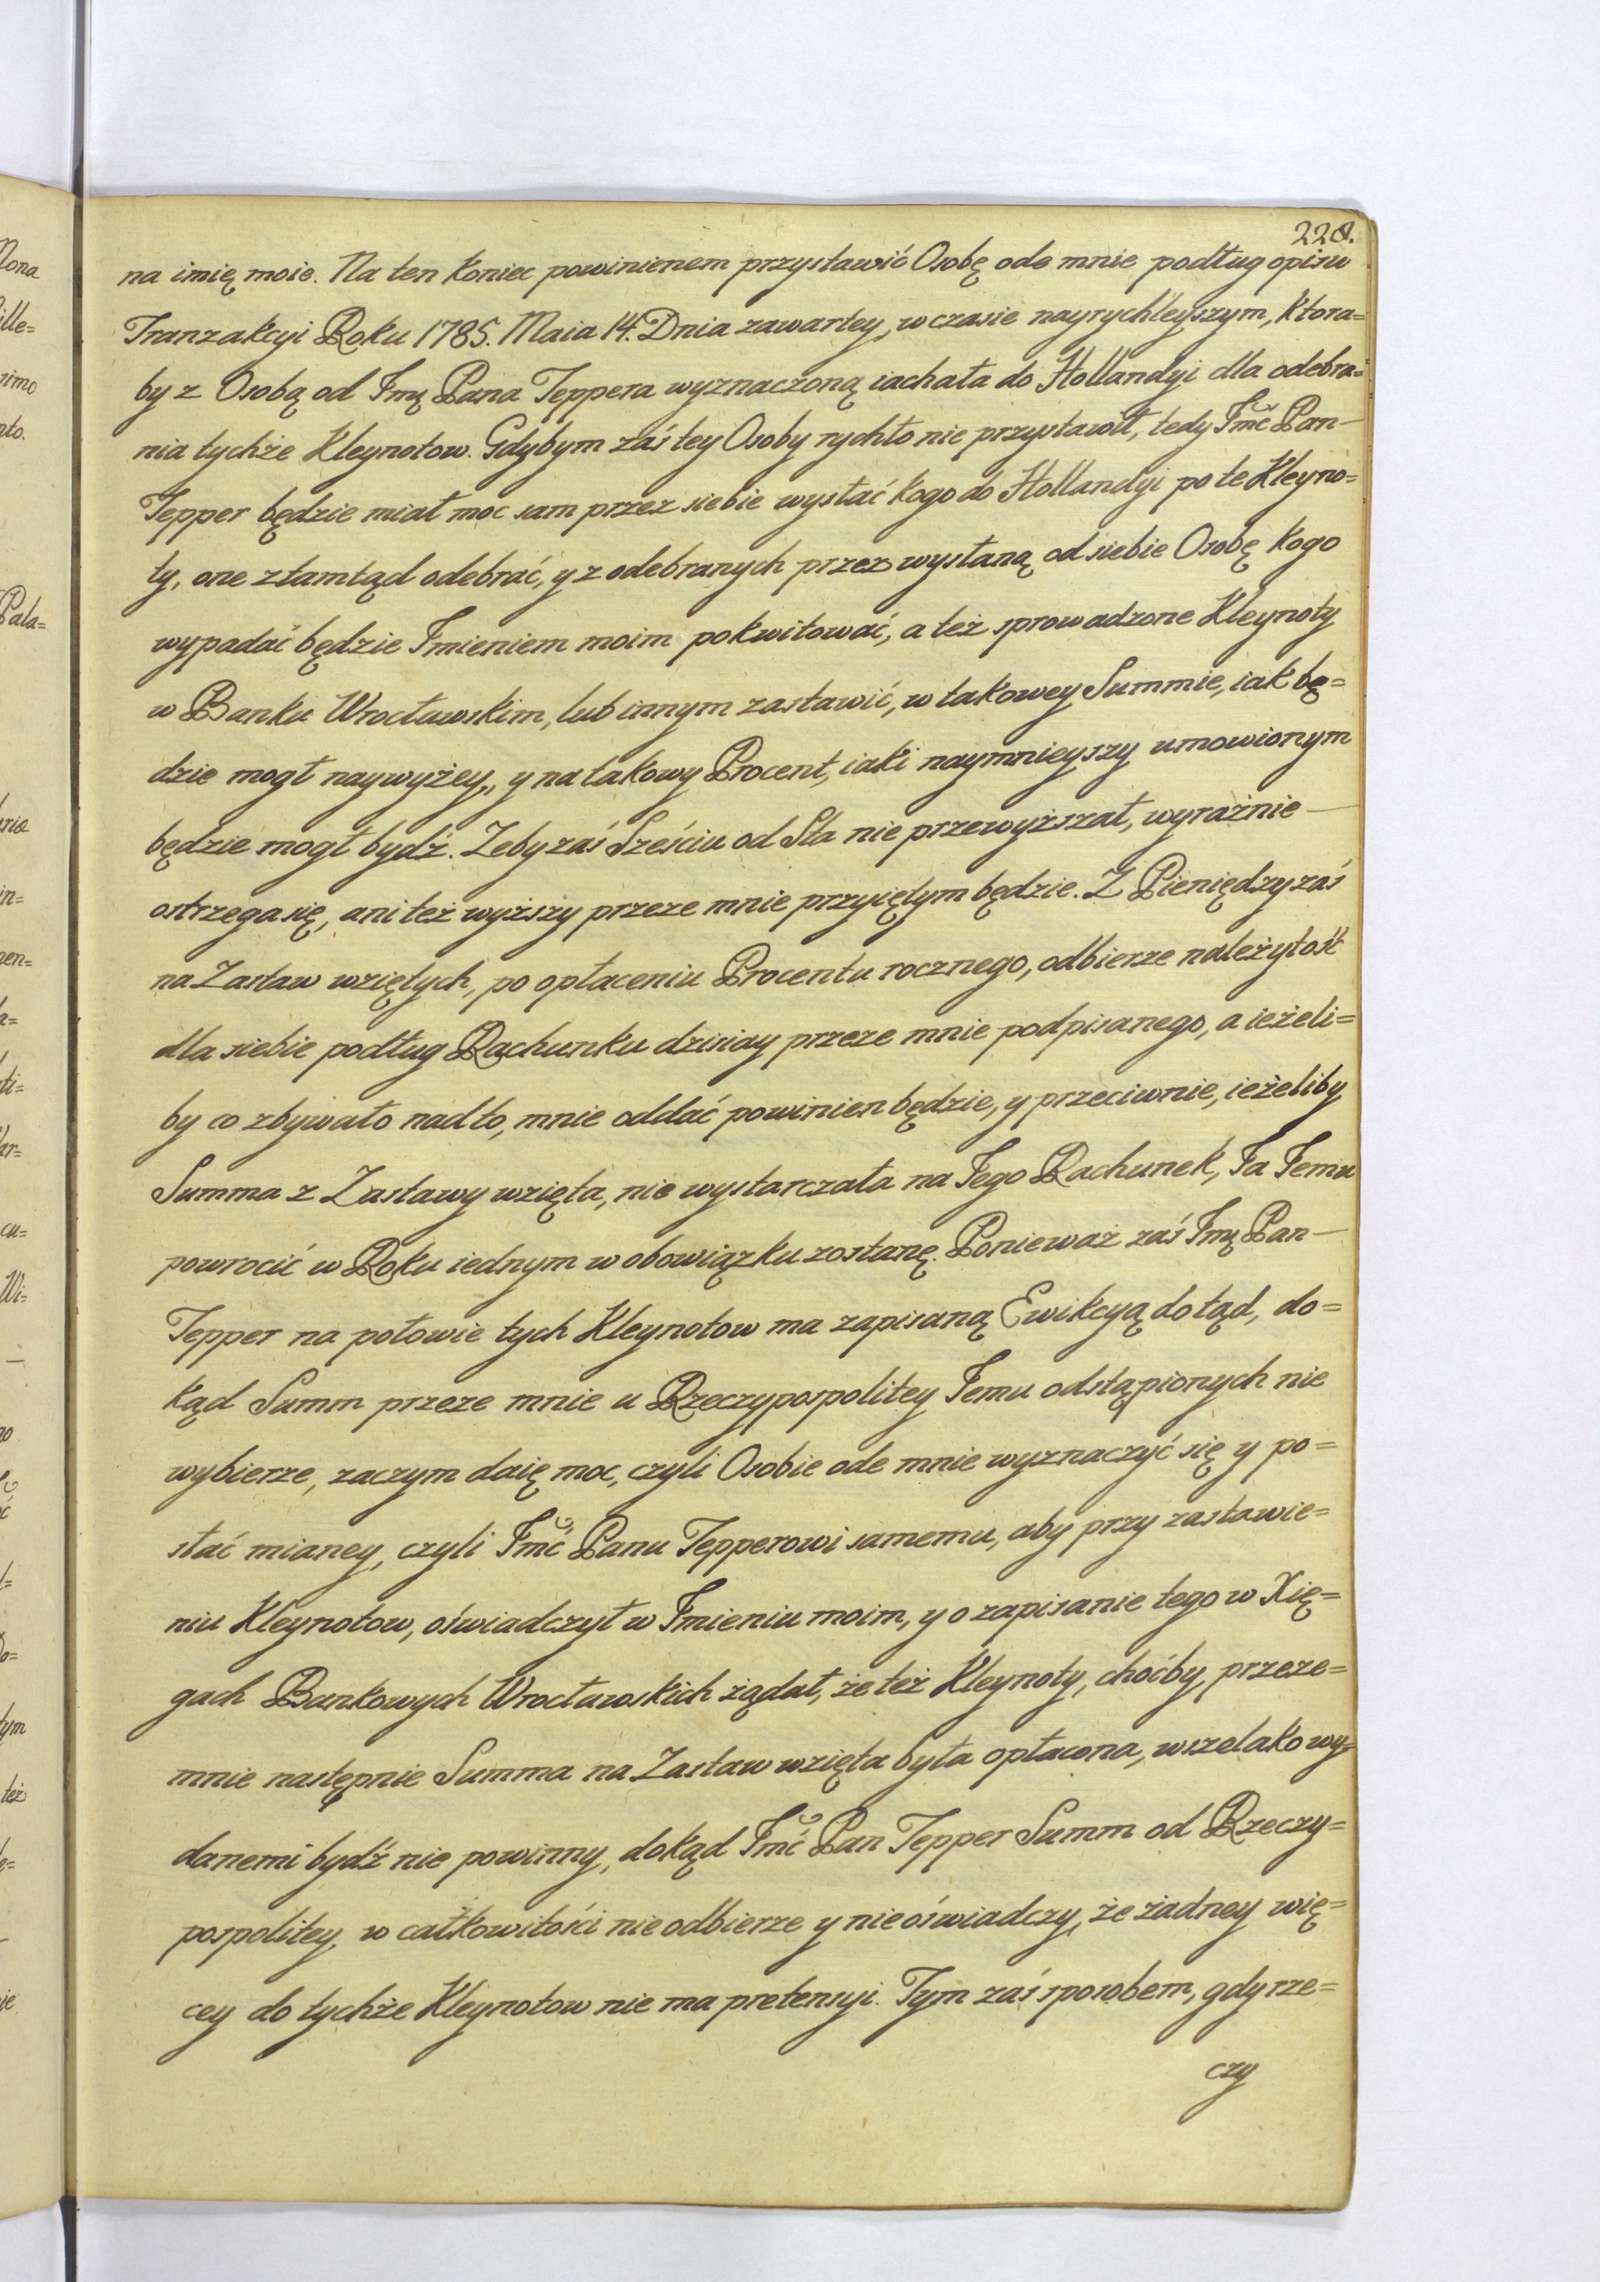 228.
na imię moie. Na ten koniec powinienem przystawić Osobę ode mnie podług opisu
Tranzakcyi Roku 1785. Maia 14. Dnia zawartey, w czasie nayrychleyszym, ktora=
by z Osobą od Jmę Pana Teppera wyznaczoną iachała do Hollandyi dla odebra=
nia tychże Kleynotow. Gdybym zaś tey Osoby rychło nie przystawił, tedy Jmć Pan
Tepper będzie miał moc sam przez siebie wysłać kogo do Hollandyi po te Kleyno=
ty, one ztamtąd odebrać, y z odebranych przez wysłaną od siebie Osobę kogo
wypadać będzie Jmieniem moim pokwitować, a też sprowadzone Kleynoty
w Banku Wrocławskim, lub innym zastawić, w takowey Summie, iak bę=
dzie mogł naywyżey, y na takowy Procent, iaki naymnieyszy umowionym
będzie mogł bydź. Zeby zaś Sześciu od Sta nie przewyższał, wyraźnie
ostrzega się, ani też wyższy przeze mnie przyiętym będzie. Z Pieniędzy zaś
na Zastaw wziętych, po opłaceniu Procentu rocznego, odbierze należytość
dla siebie podług Rachunku dzisiay przeze mnie podpisanego, a ieżeli=
by co zbywało nadto, mnie oddać powinien będzie, y przeciwnie, ieżeliby
Summa z Zastawy wzięta, nie wystarczała na Jego Rachunek, Ja Jemu
powrocić w Roku iednym w obowiązku zostanę. Ponieważ zaś Jmę Pan
Tepper na połowie tych Kleynotow ma zapisaną Ewikcyą dotąd, do=
kąd Summ przeze mnie u Rzeczypospolitey Jemu odstąpionych nie
wybierze, zaczym daię moc, czyli Osobie ode mnie wyznaczyć się y po=
stać mianey, czyli Jmć Panu Tepperowi samemu, aby przy zastawie=
niu Kleynotow, oświadczył w Jmieniu moim, y o zapisanie tego w Xię=
gach Bankowych Wrocławskich żądał, że też Kleynoty, choćby, przeze=
mnie następnie Summa na Zastaw wzięta była opłacona, wszelako wy=
danemi bydź nie powinny, dokąd Jmć Pan Tepper Summ od Rzeczy=
pospolitey, w całkowitości nie odbierze y nie oświadczy, że żadney wię=
cey do tychże Kleynotow nie ma pretensyi. Tym zaś sposobem, gdy rze=
czy